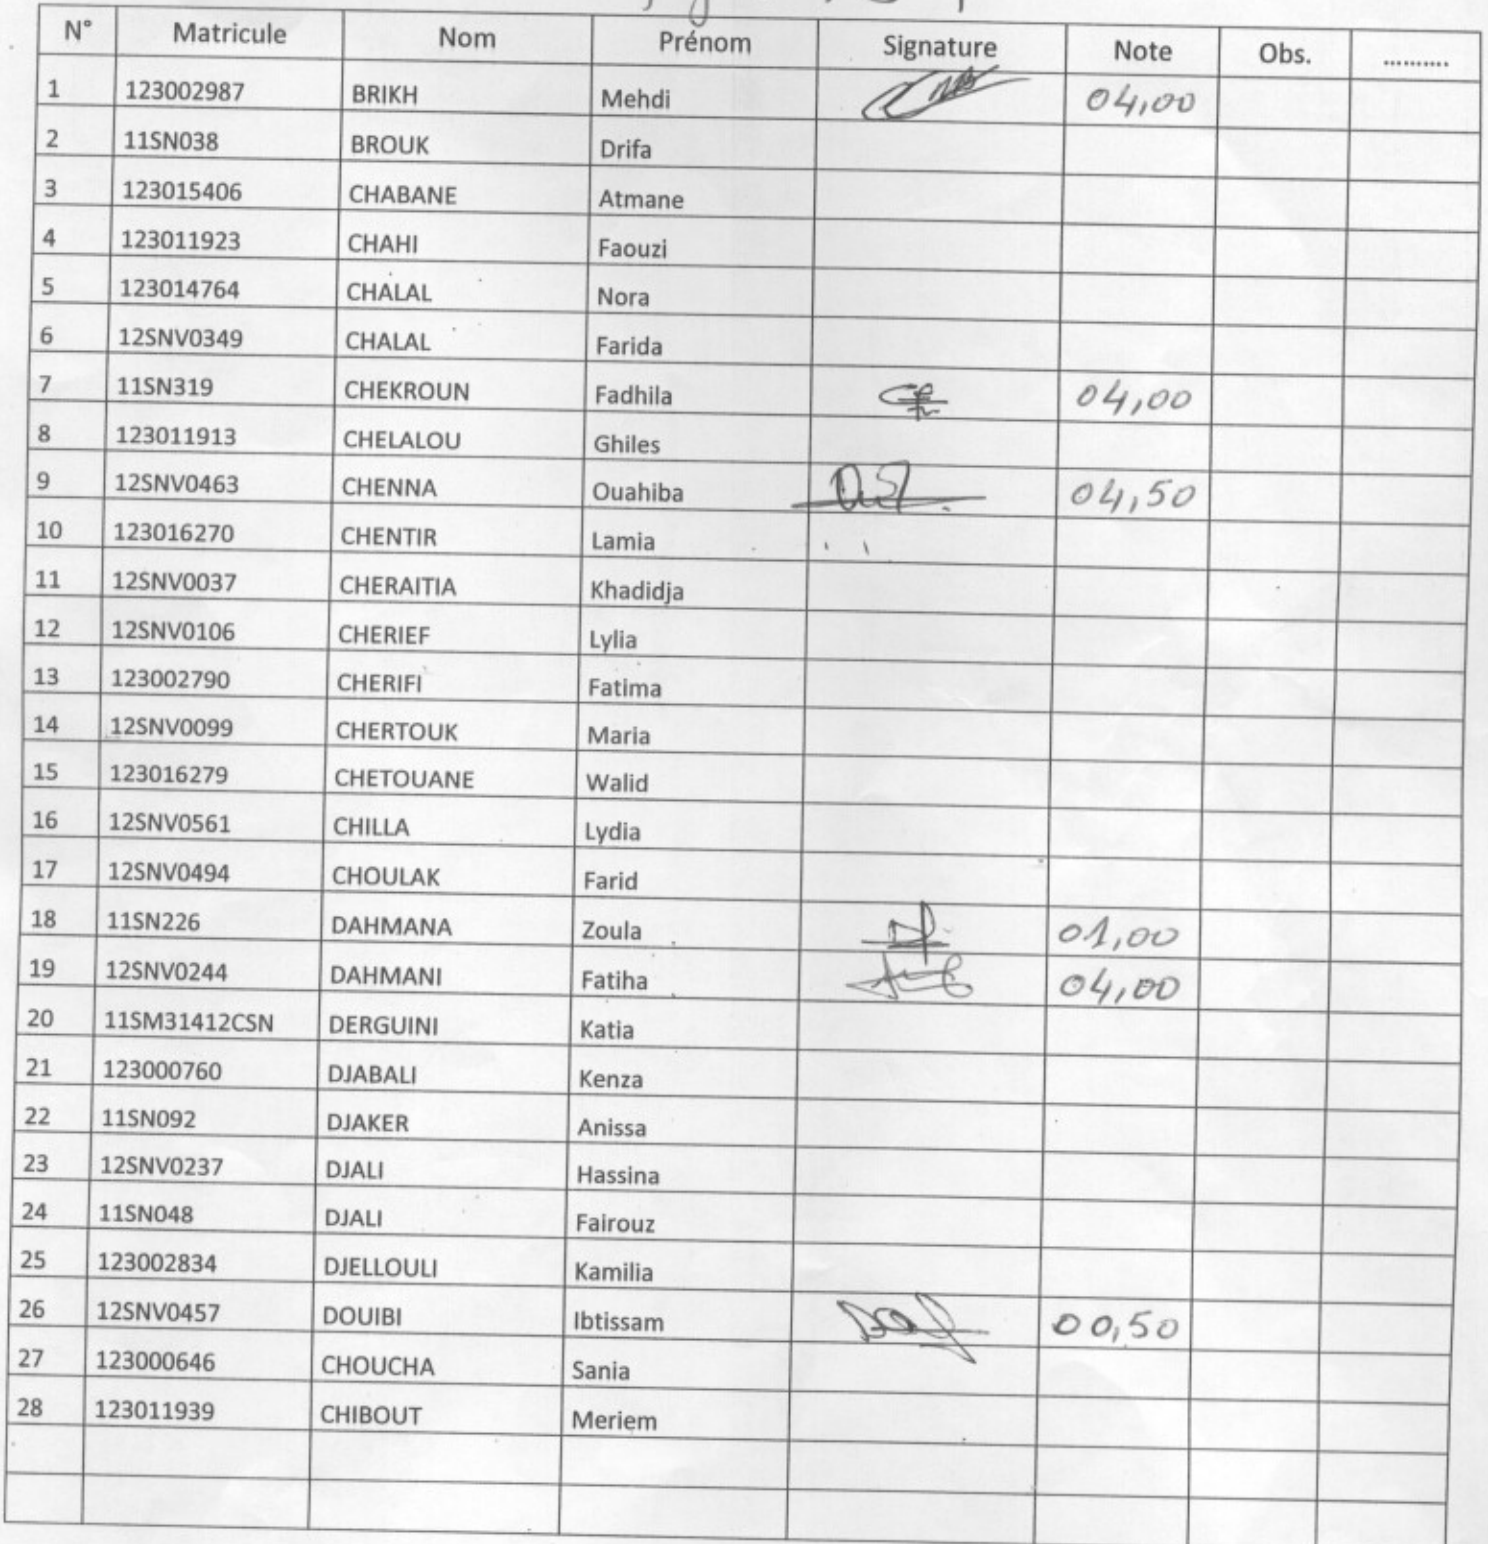 N° Matricule Nom Prénom Signature Note Obs. ..........
1 123002987 BRIKH Mehdi 04,00
2 11SN038 BROUK Drifa
3 123015406 CHABANE Atmane
4 123011923 CHAHI Faouzi
5 123014764 CHALAL Nora
6 12SNV0349 CHALAL Farida
7 11SN319 CHEKROUN Fadhila 04,00
8 123011913 CHELALOU Ghiles
9 12SNV0463 CHENNA Ouahiba 04,50
10 123016270 CHENTIR Lamia
11 12SNV0037 CHERAITIA Khadidja
12 12SNV0106 CHERIEF Lylia
13 123002790 CHERIFI Fatima
14 12SNV0099 CHERTOUK Maria
15 123016279 CHETOUANE Walid
16 12SNV0561 CHILLA Lydia
17 12SNV0494 CHOULAK Farid
18 11SN226 DAHMANA Zoula 01,00
19 12SNV0244 DAHMANI Fatiha 04,00
20 11SM31412CSN DERGUINI Katia
21 123000760 DJABALI Kenza
22 11SN092 DJAKER Anissa
23 12SNV0237 DJALI Hassina
24 11SN048 DJALI Fairouz
25 123002834 DJELLOULI Kamilia
26 12SNV0457 DOUIBI Ibtissam 00,50
27 123000646 CHOUCHA Sania
28 123011939 CHIBOUT Meriem